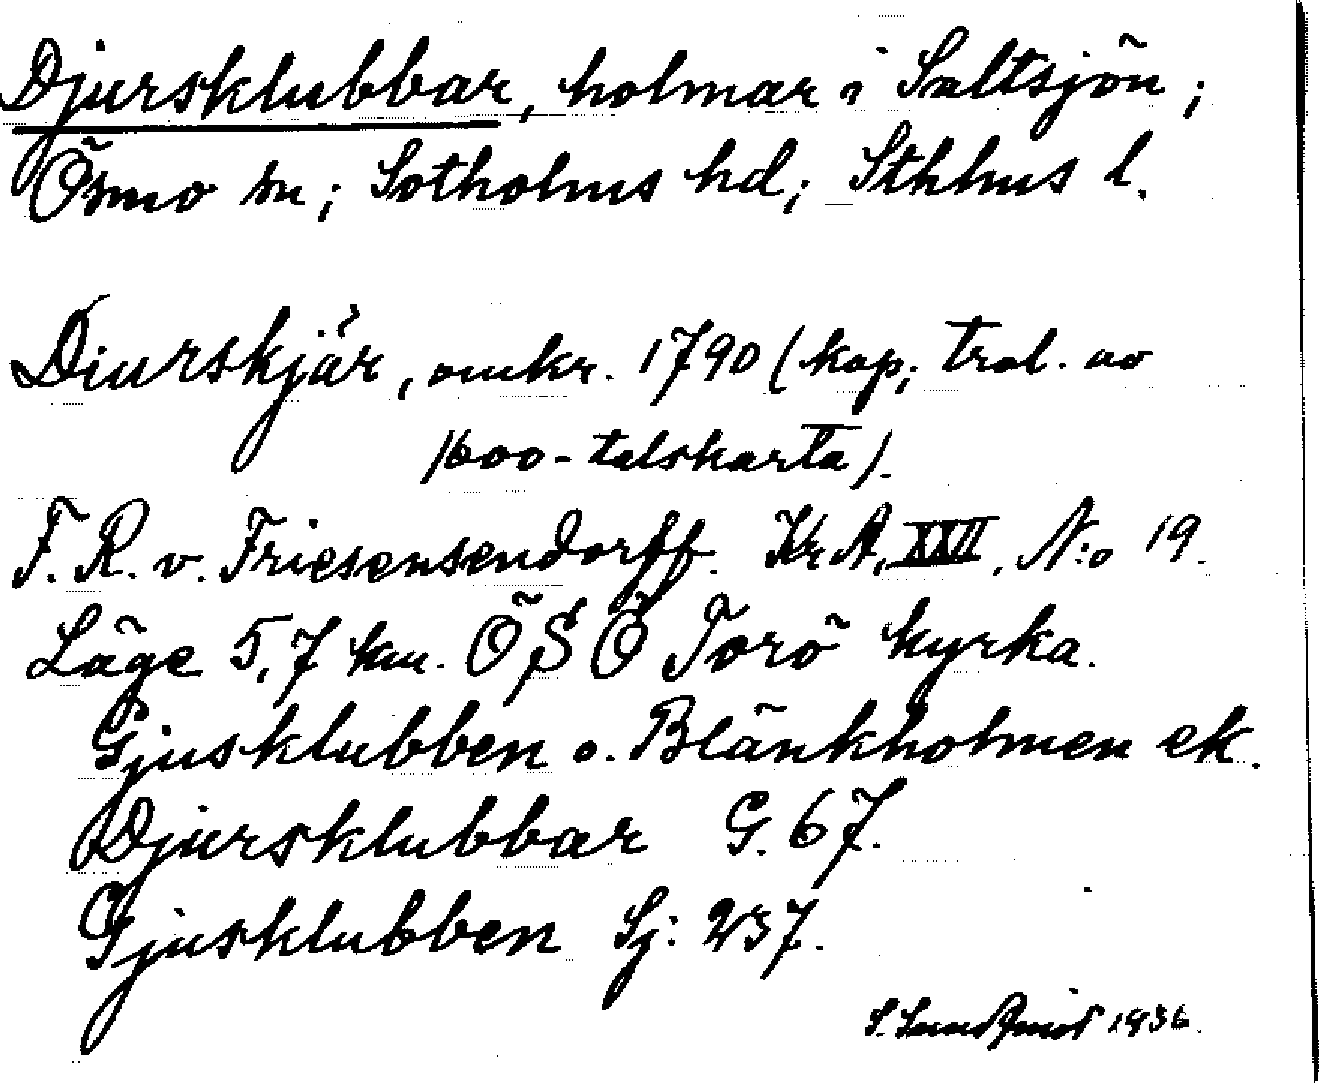 Djursklubbar, holmar i Saltsjön;
Ösmo sn; Sotholms hd; Sthlms l.
Diurskjär, omkr. 1790 (kop; trol. av
1600-talskarta).
F. R. v. Friesensendorff. Kr A, XXII, N:o 19.
Läge 5,7 km. ÖSÖ Torö kyrka.
Gjusklubben o. Blänkholmen ek.
Djursklubbar G. 67.
Gjusklubben Sj: 237.
S. Lundqvist 1936.